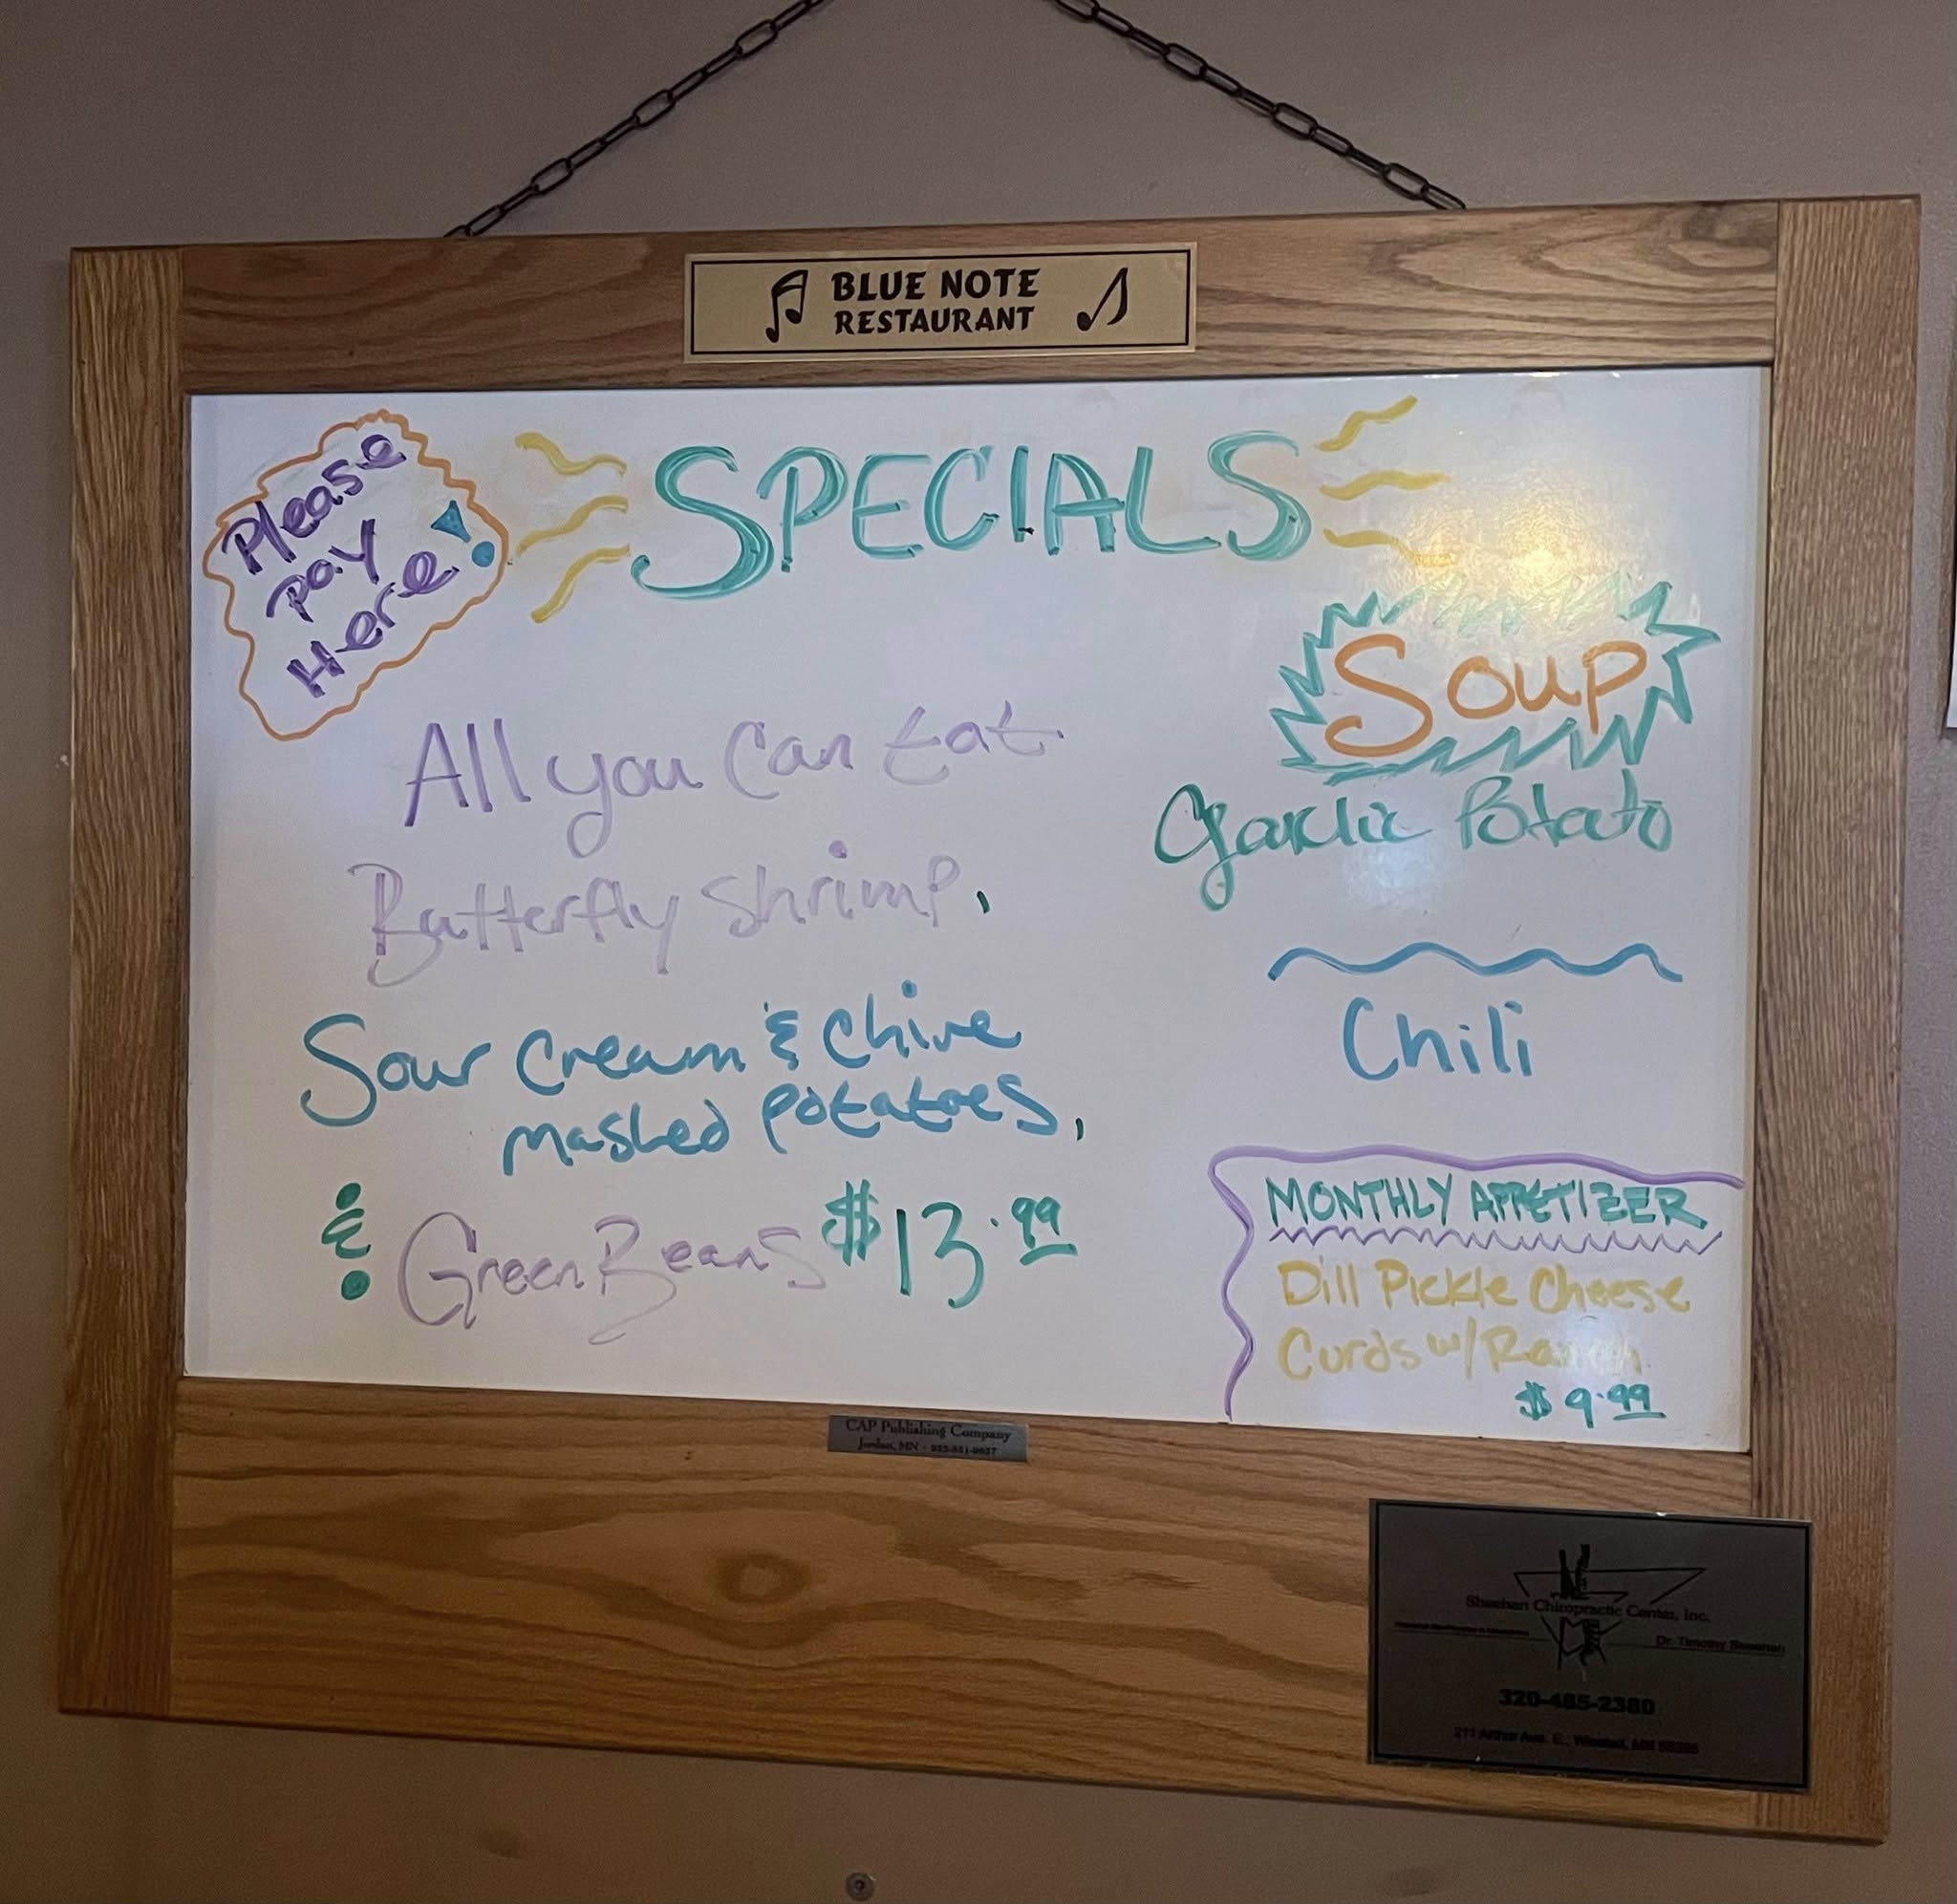 BLUE NOTE
RESTAURANT
Please
pay
Here!
SPECIALS
All you Can Eat
Butterfly Shrimp,
Sour Cream & Chive
mashed potatoes,
& Green Beans $13.99
Soup
Garlic Potato
Chili
MONTHLY APPETIZER
Dill Pickle Cheese
Curds w/Ranch
$9.99
CAP Publishing Company
Jordan, MN
Sheehan Chiropractic Center, Inc.
Dr. Timothy Sheehan
320-485-2380
211 Arthur Ave. E., Winsted, MN